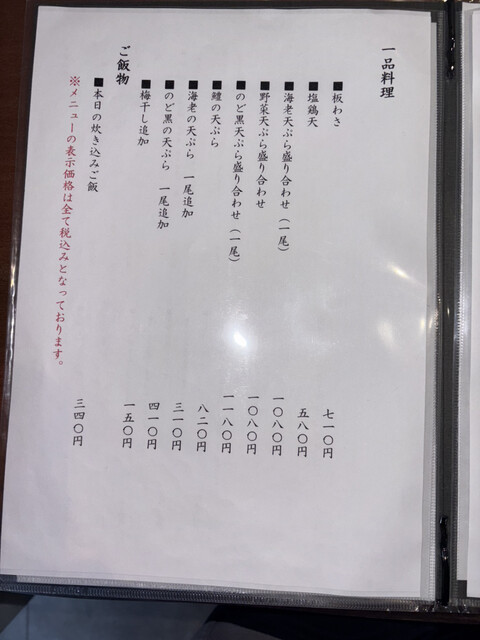 一品料理
■板わさ 七一〇円
■塩鶏天 五八〇円
■海老天ぷら盛り合わせ（一尾） 一〇八〇円
■野菜天ぷら盛り合わせ 一〇八〇円
■のど黒天ぷら盛り合わせ（一尾） 一一八〇円
■鱧の天ぷら 八二〇円
■海老の天ぷら 一尾追加 三一〇円
■のど黒の天ぷら 一尾追加 四一〇円
■梅干し追加 一五〇円
ご飯物
■本日の炊き込みご飯 三四〇円
※メニューの表示価格は全て税込みとなっております。